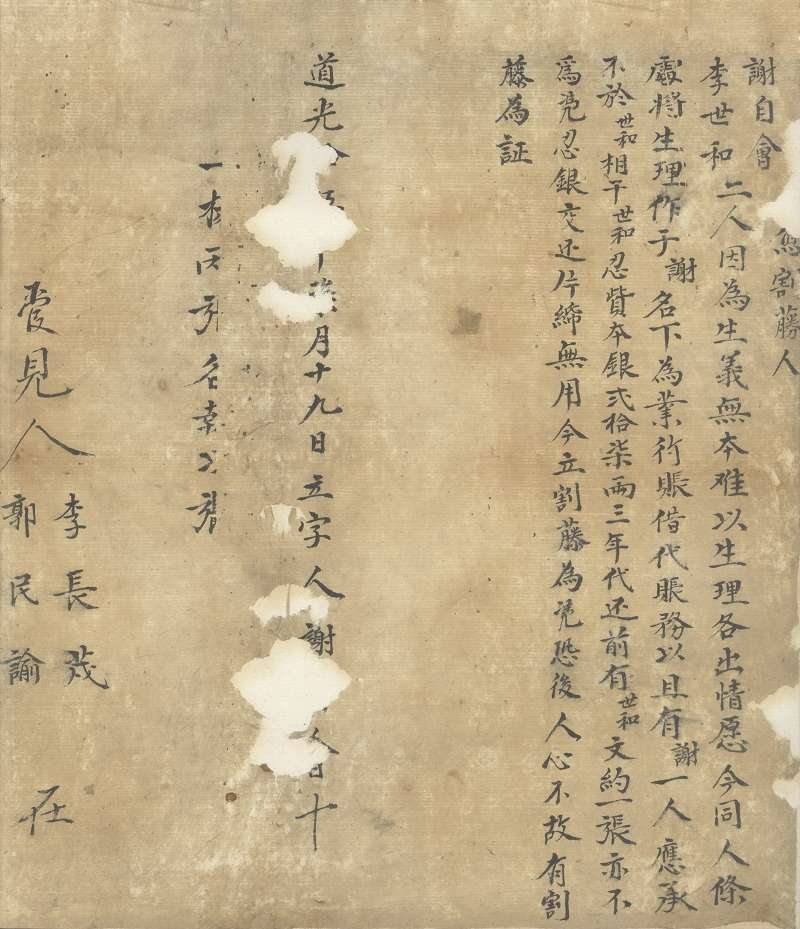 割藤人
謝自會
李世和二人因為生義無本难以生理各出情愿今同人條
處將生理作于謝名下為業行賬借代賬務以且有謝一人應承
不於世和相干世和忍貲本銀弍拾柒兩三年代还前有世和文約一張亦不
為凭忍銀交还片締無用今立割藤為凭恐後人心不故有割
藤為証
道光 月十九日立字人謝 十
一 各
愛見人
李長茂
郭民諭
在